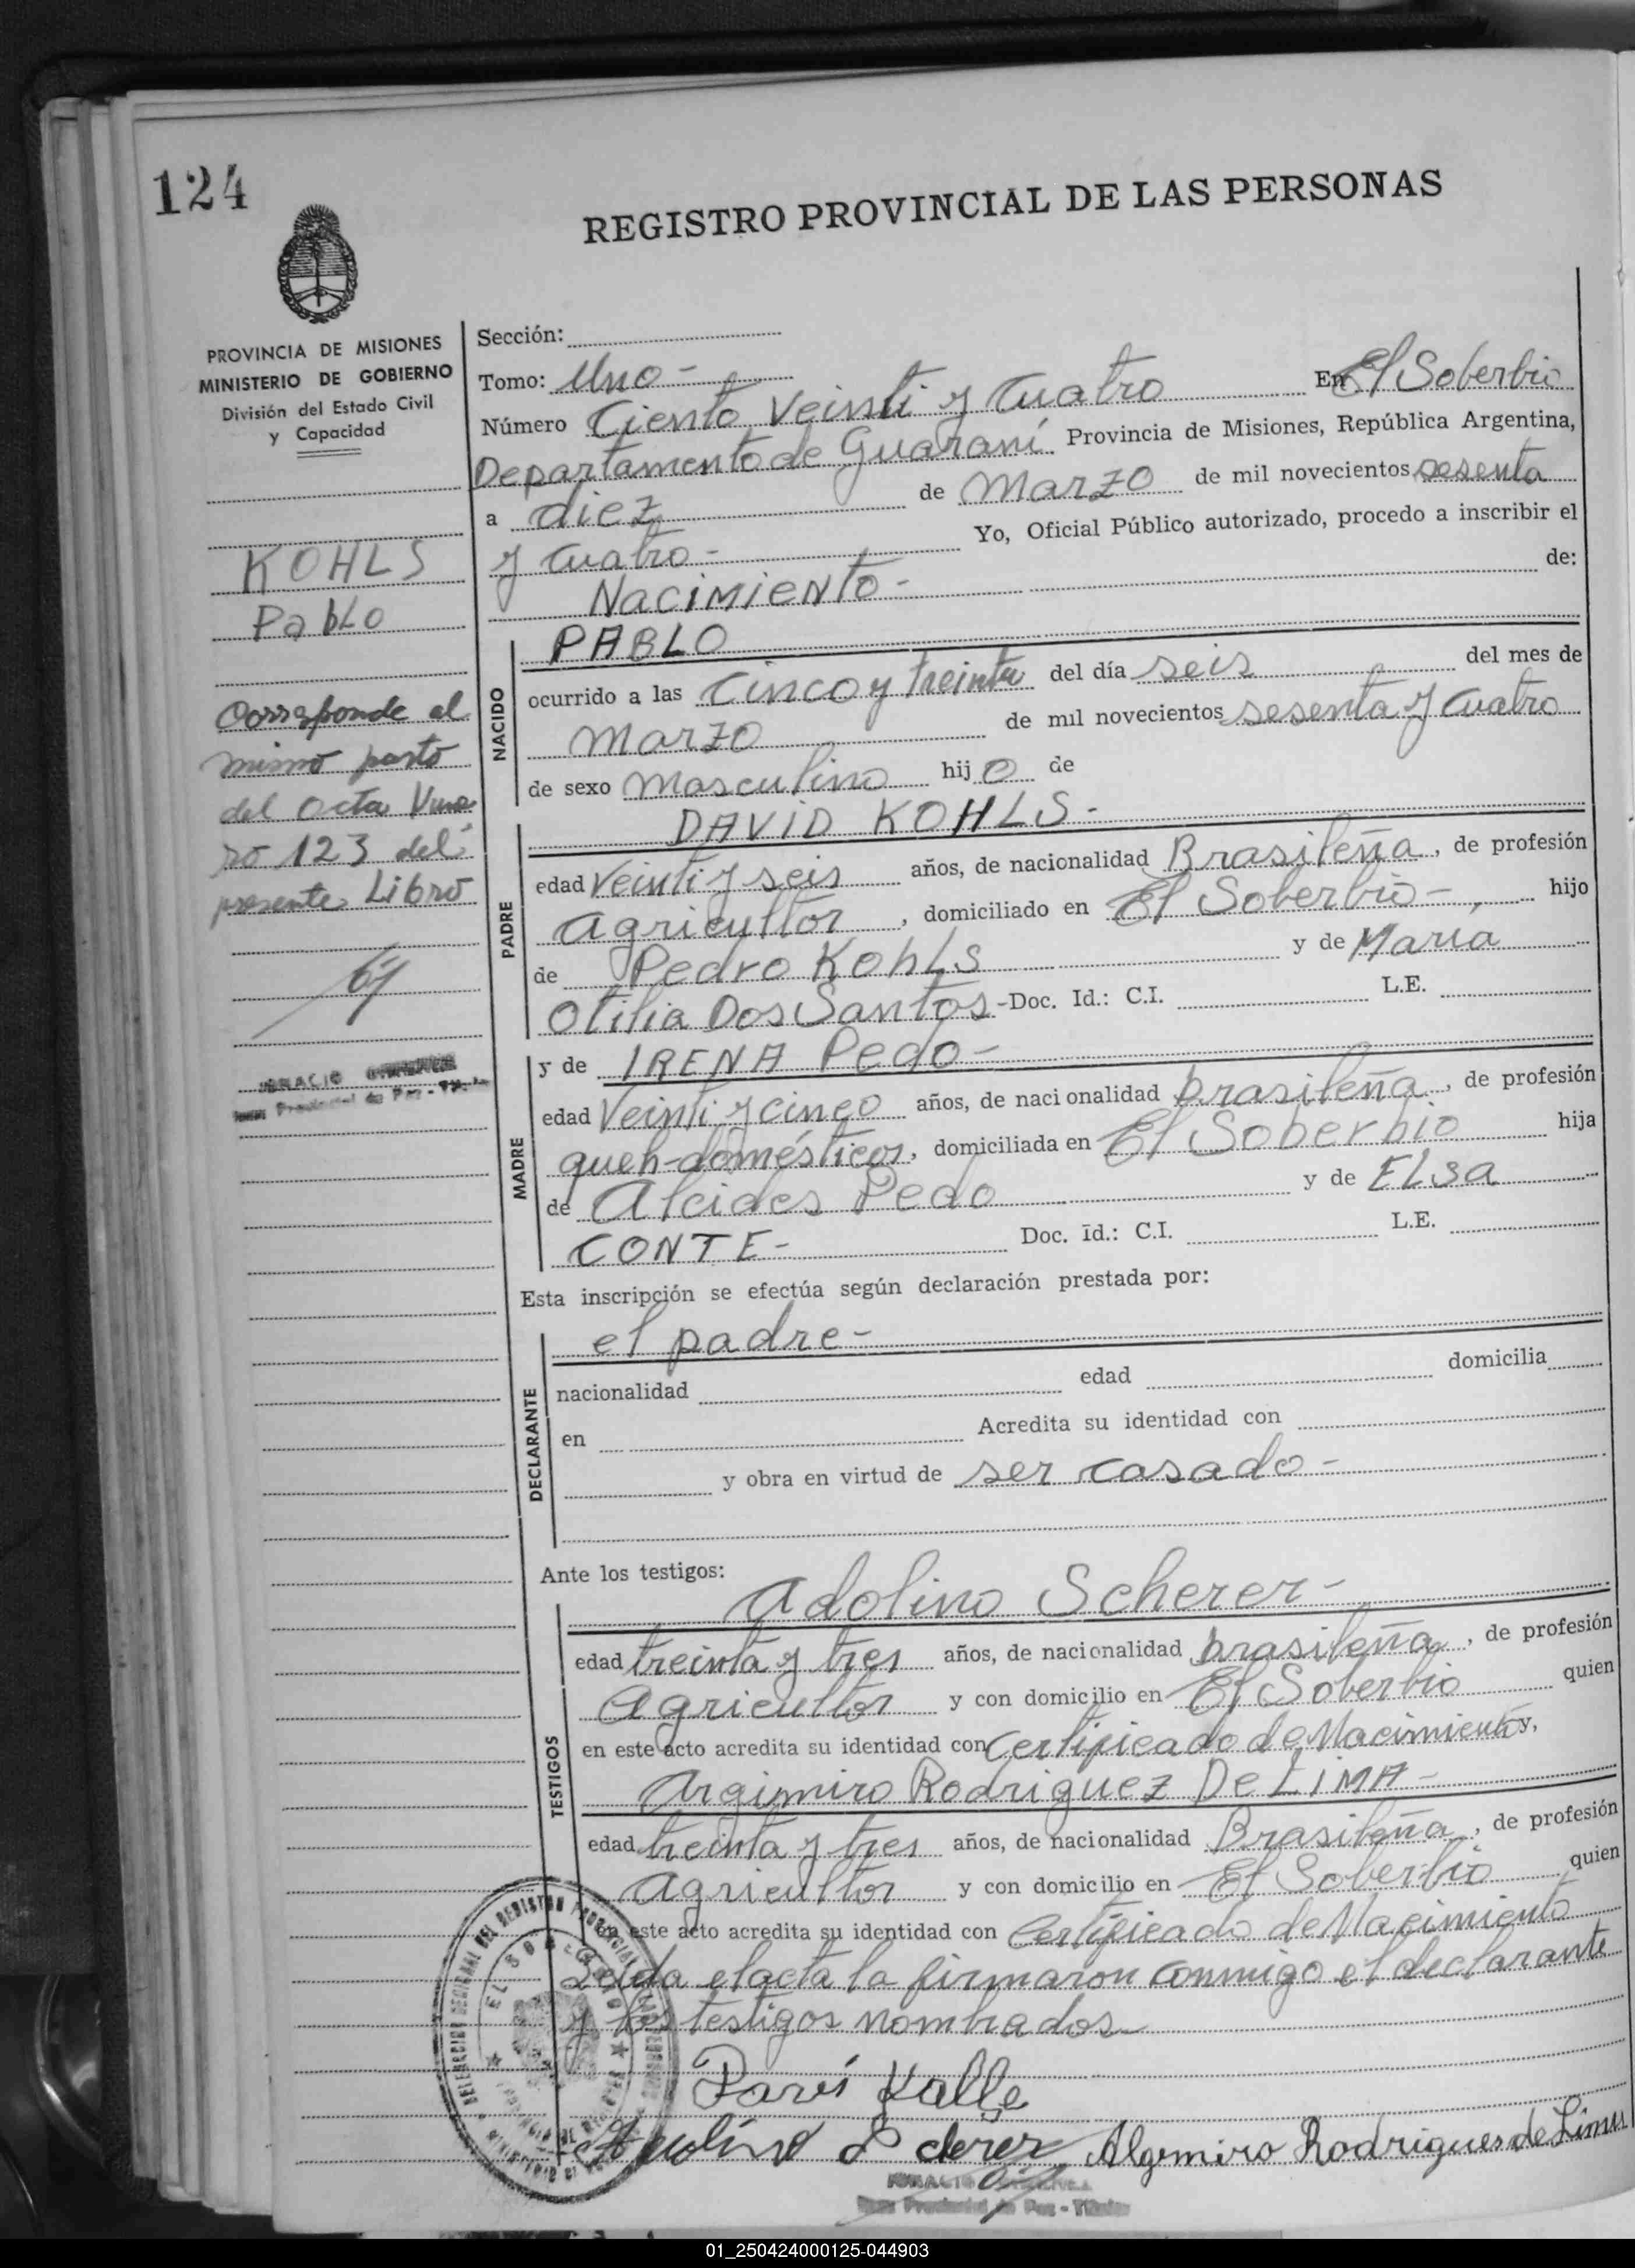 124
REGISTRO PROVINCIAL DE LAS PERSONAS
PROVINCIA DE MISIONES
MINISTERIO DE GOBIERNO
División del Estado Civil
y Capacidad
KOHLS
Pablo
Corresponde al
mismo parto
del acta Nume
ro 123 del
presente Libro
Sección:
Tomo: Uno -
Número Ciento Veinti y Cuatro En El Soberbio
Departamento de Guaraní Provincia de Misiones, República Argentina,
a diez de Marzo de mil novecientos sesenta
y cuatro - Yo, Oficial Público autorizado, procedo a inscribir el
Nacimiento - de:
NACIDO
PABLO
ocurrido a las Cinco y treinta del día seis del mes de
Marzo de mil novecientos sesenta y Cuatro
de sexo Masculino hijo de
PADRE
DAVID KOHLS -
edad Veinti y seis años, de nacionalidad Brasileña, de profesión
agricultor, domiciliado en El Soberbio - , hijo
de Pedro Kohls y de María
Otilia Dos Santos - Doc. Id.: C.I. L.E.
MADRE
y de IRENA Pedo -
edad Veinti y cinco años, de nacionalidad brasileña, de profesión
queh-domésticos, domiciliada en El Soberbio hija
de Alcides Pedo y de ELsa
CONTE - Doc. Id.: C.I. L.E.
Esta inscripción se efectúa según declaración prestada por:
DECLARANTE
el padre -
nacionalidad edad domicilia
en Acredita su identidad con
y obra en virtud de ser casado -
Ante los testigos:
TESTIGOS
Adolino Scherer -
edad treinta y tres años, de nacionalidad brasileña, de profesión
Agricultor y con domicilio en El Soberbio quien
en este acto acredita su identidad con Certificado de Nacimiento y,
Argimiro Rodriguez De LIMA -
edad treinta y tres años, de nacionalidad Brasileña, de profesión
agricultor y con domicilio en El Soberbio quien
en este acto acredita su identidad con Certificado de Nacimiento
Leida el acta la firmaron conmigo el declarante
y los testigos nombrados
Algemiro Rodrigues de Lima
01_250424000125-044903